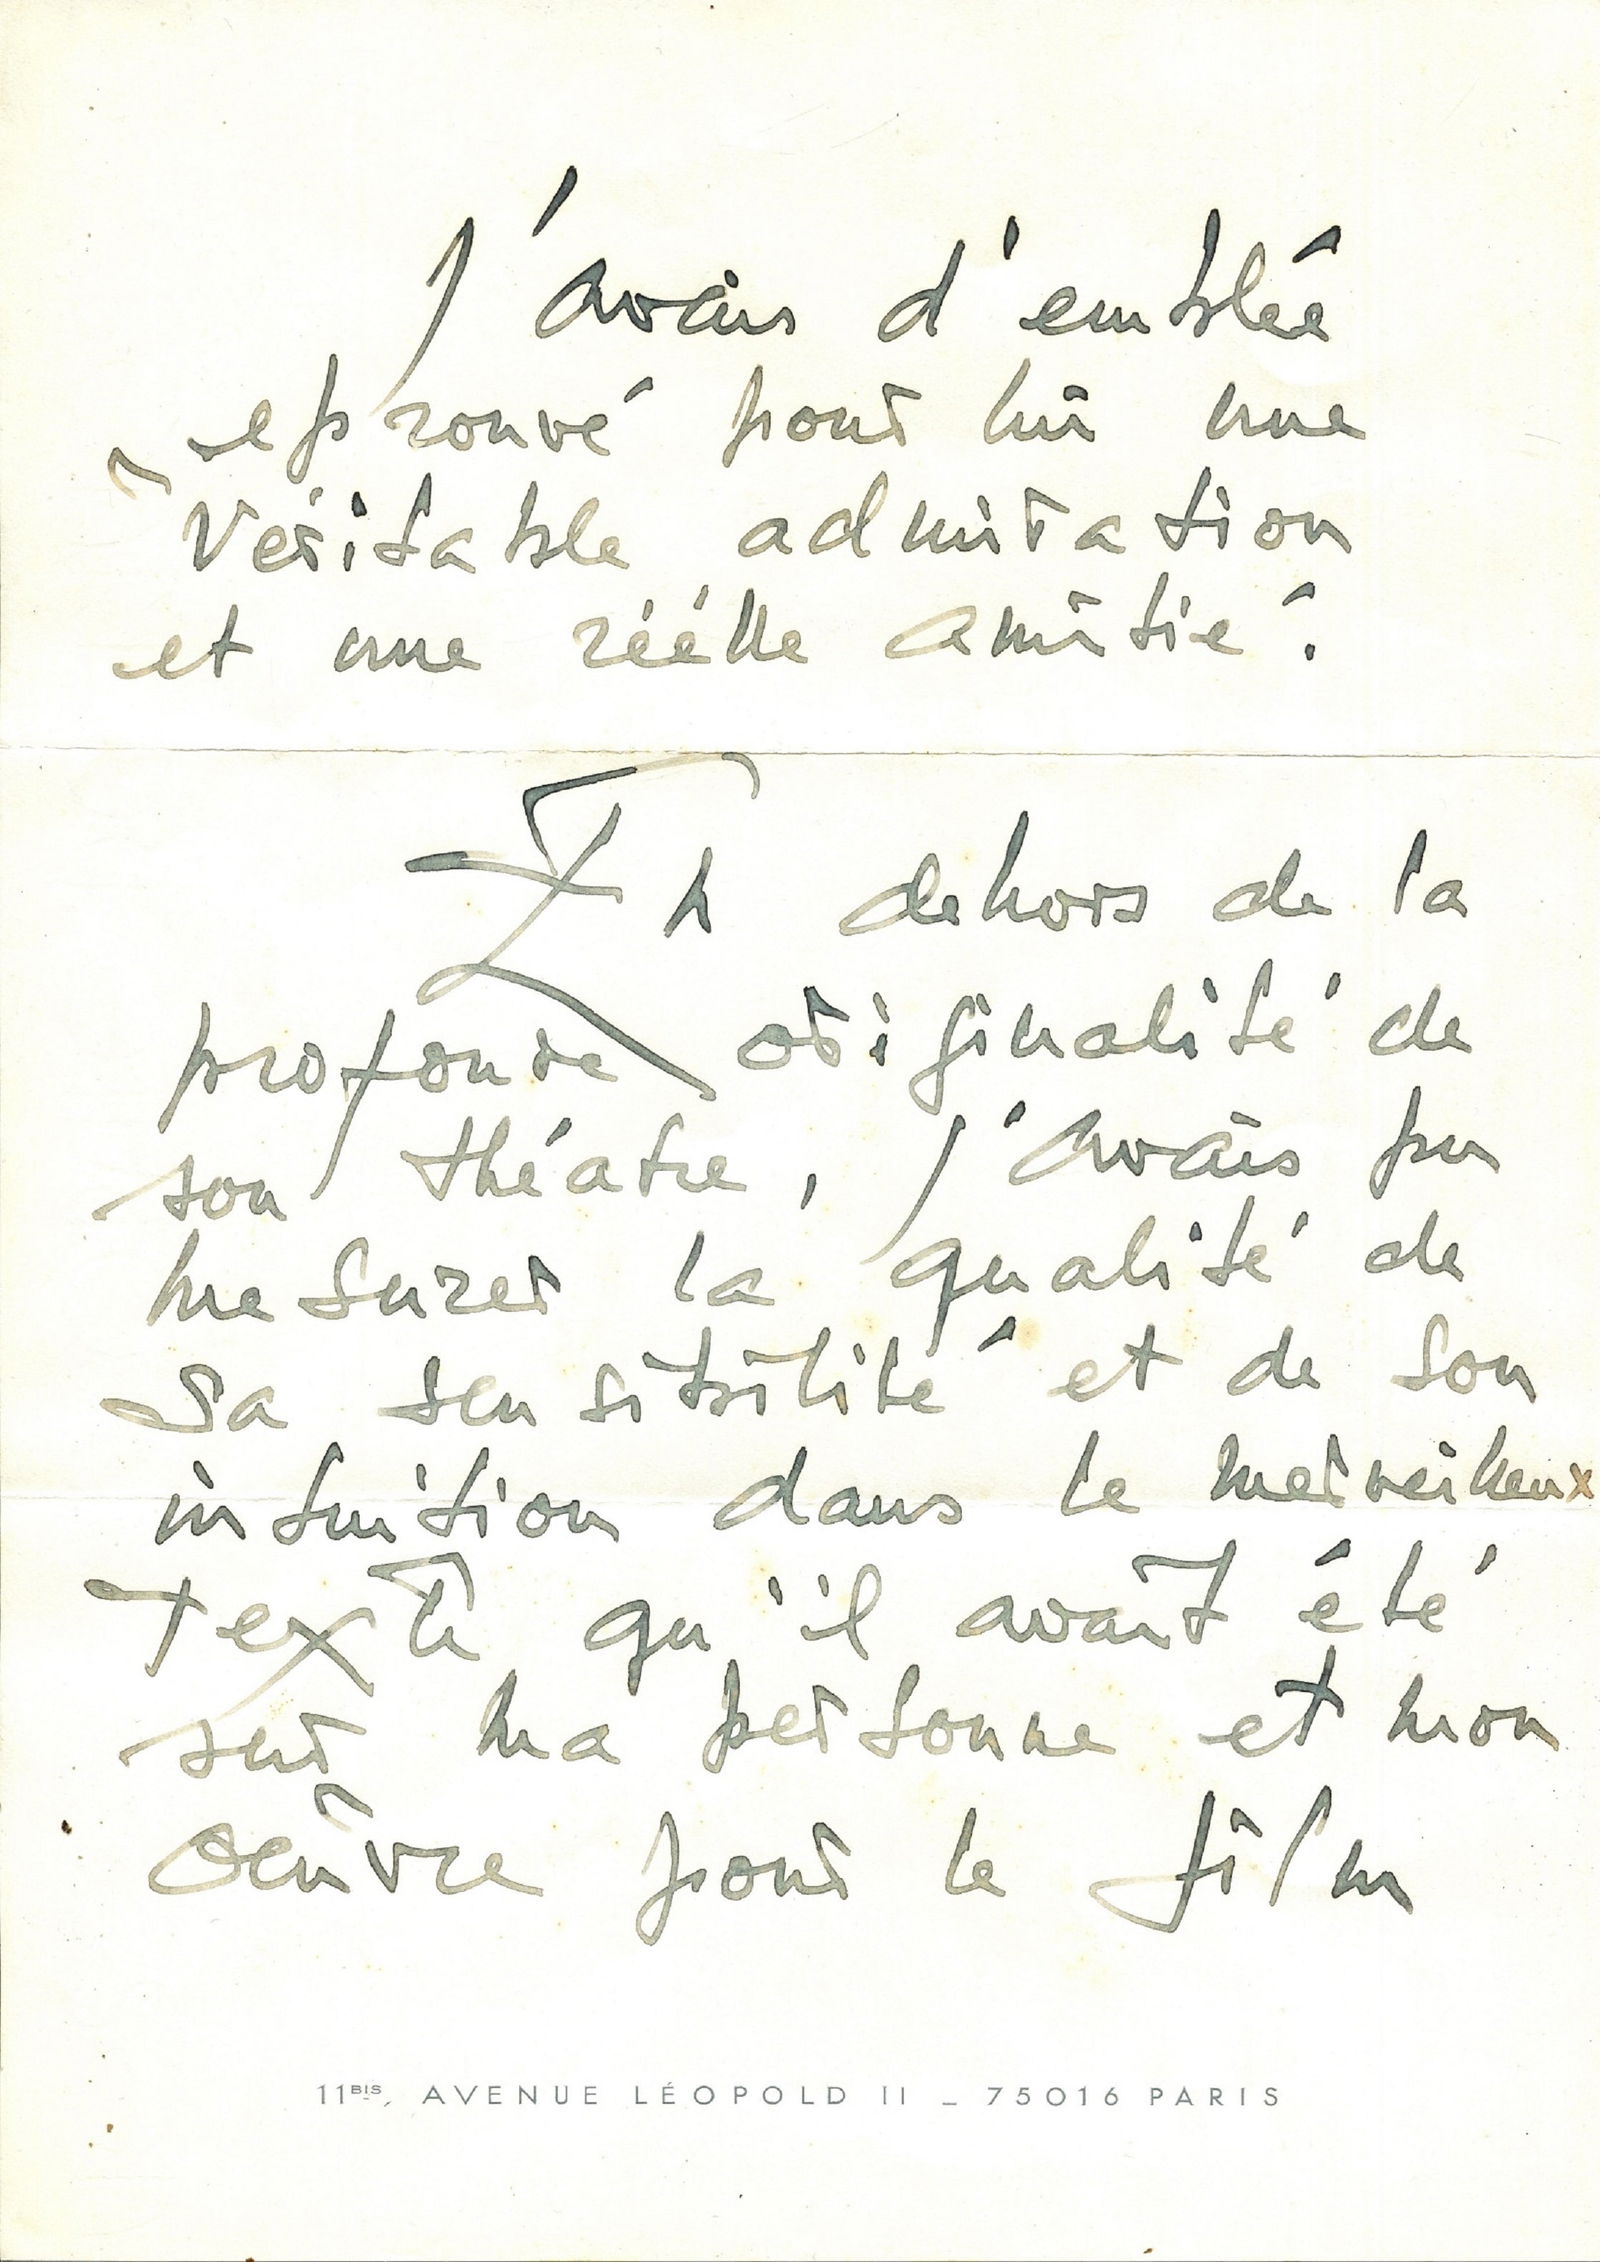 J'avais d'emblée
eprouvé pour lui une
Véritable admiration
et une réélle amitié.
En dehors de la
profonde originalité de
son théatre, j'avais pu
mesurer la qualité de
sa sensibilité et de son
intuition dans le merveilleux
texte qu'il avait été
sur ma personne et mon
oeuvre pour le film
11BIS, AVENUE LÉOPOLD II _ 75016 PARIS